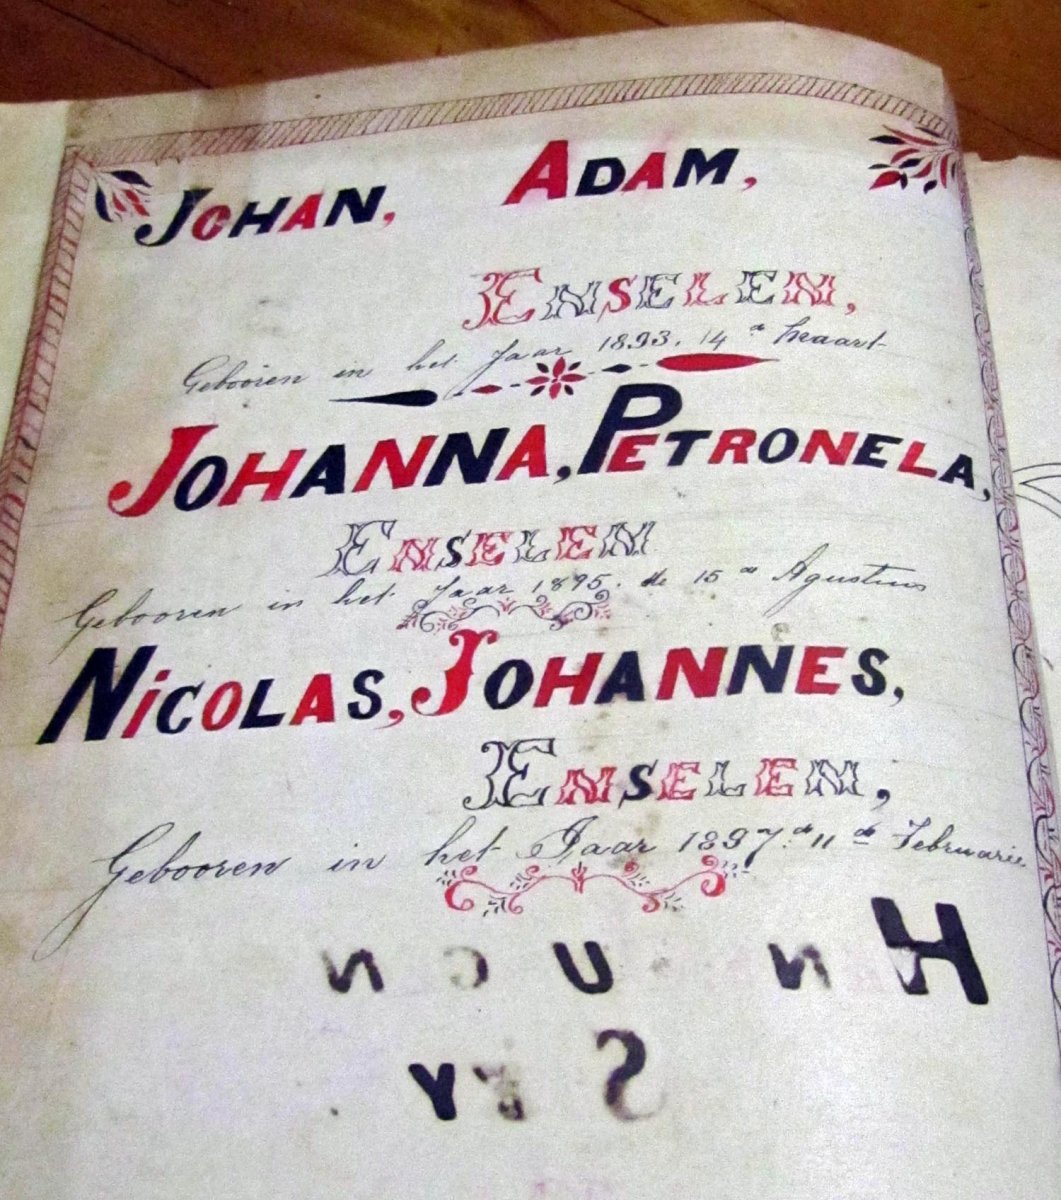 JOHAN, ADAM,
ENSELEN,
Gebooren in het Jaar 1893. 14 de Maart
JOHANNA, PETRONELA,
ENSELEN
Gebooren in het Jaar 1895. de 15 de Agustus
NiCOLAS, JOHANNES,
ENSELEN,
Gebooren in het Jaar 1897. de 11 de Februarie